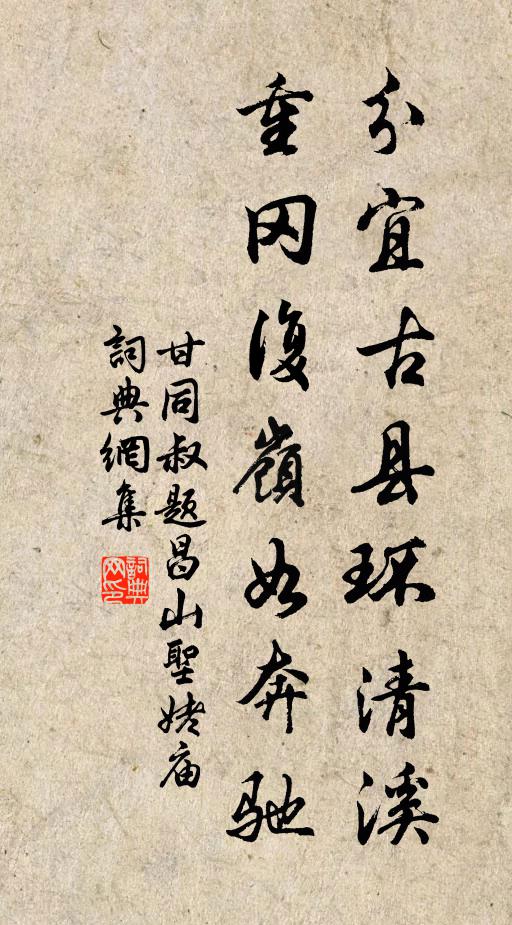 分宜古县环清溪
重冈復嶺如奔驰
甘同叔题昌山聖姥庙
詞典網集
詞典网印